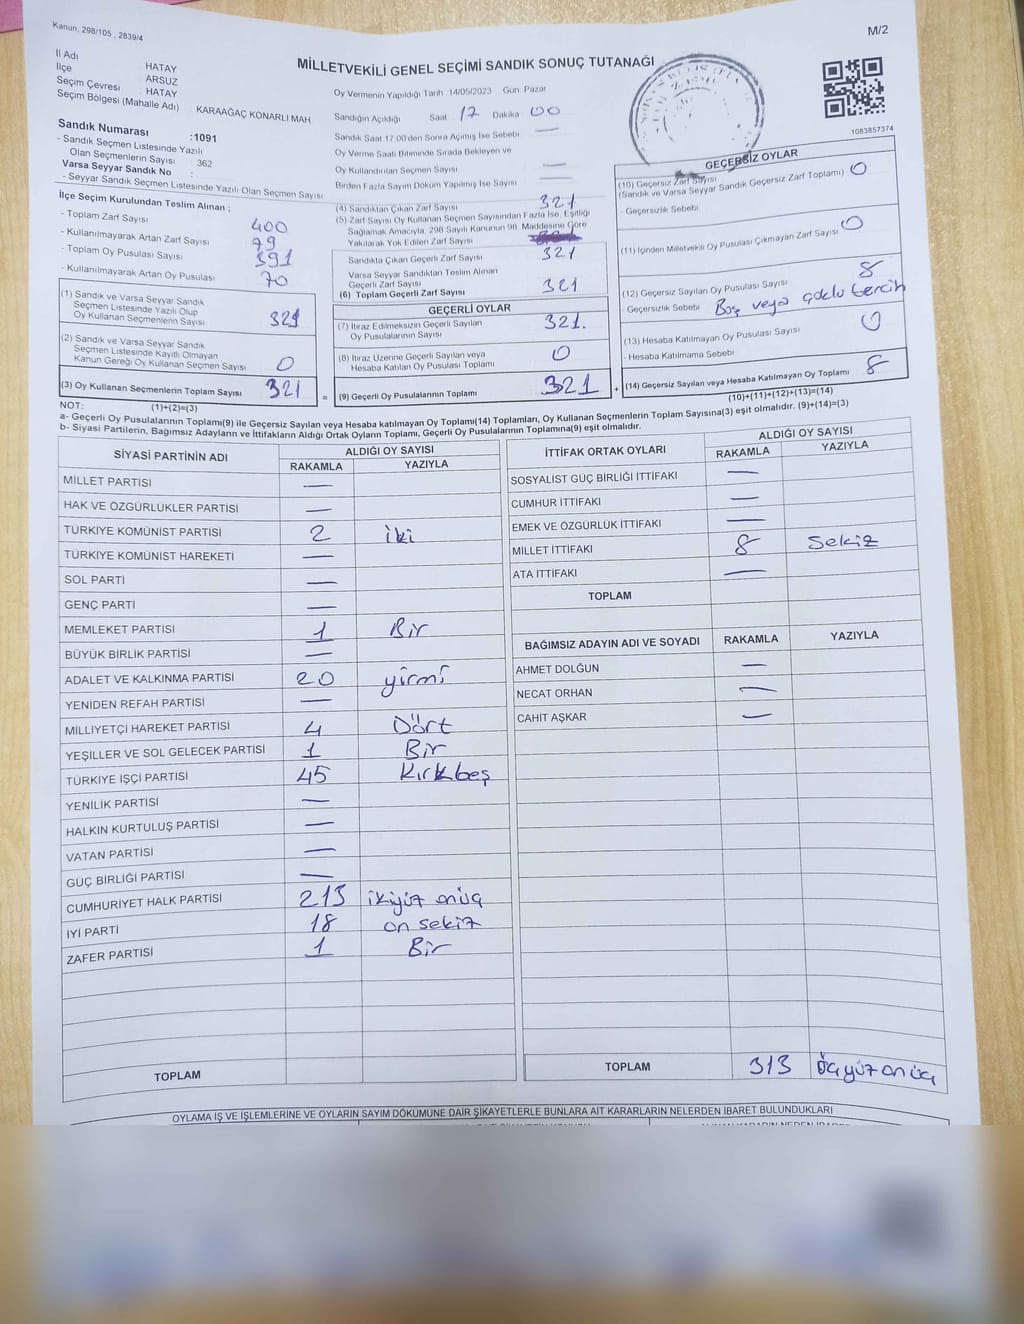 Kanun, 298/105 , 2839/4
M/2
İl Adı HATAY
İlçe ARSUZ
Seçim Çevresi HATAY
Seçim Bölgesi (Mahalle Adı) KARAAĞAÇ KONARLI MAH
MİLLETVEKİLİ GENEL SEÇİMİ SANDIK SONUÇ TUTANAĞI
Oy Vermenin Yapıldığı Tarih 14/05/2023 Gün: Pazar
Sandığın Açıldığı Saat 17 Dakika 00
Sandık Saat 17.00'den Sonra Açılmış İse Sebebi —
Oy Verme Saati Bitiminde Sırada Bekleyen ve
Oy Kullandırılan Seçmen Sayısı —
Birden Fazla Sayım Döküm Yapılmış İse Sayısı —
1083857374
Sandık Numarası :1091
- Sandık Seçmen Listesinde Yazılı
Olan Seçmenlerin Sayısı : 362
Varsa Seyyar Sandık No :
- Seyyar Sandık Seçmen Listesinde Yazılı Olan Seçmen Sayısı
İlçe Seçim Kurulundan Teslim Alınan ;
- Toplam Zarf Sayısı 400
- Kullanılmayarak Artan Zarf Sayısı 79
- Toplam Oy Pusulası Sayısı 391
- Kullanılmayarak Artan Oy Pusulası 70
(1) Sandık ve Varsa Seyyar Sandık
Seçmen Listesinde Yazılı Olup
Oy Kullanan Seçmenlerin Sayısı 321
(2) Sandık ve Varsa Seyyar Sandık
Seçmen Listesinde Kayıtlı Olmayan
Kanun Gereği Oy Kullanan Seçmen Sayısı 0
(3) Oy Kullanan Seçmenlerin Toplam Sayısı 321
(1)+(2)=(3)
(4) Sandıktan Çıkan Zarf Sayısı 321
(5) Zarf Sayısı Oy Kullanan Seçmen Sayısından Fazla İse, Eşitliği
Sağlamak Amacıyla, 298 Sayılı Kanunun 98. Maddesine Göre
Yakılarak Yok Edilen Zarf Sayısı
Sandıkta Çıkan Geçerli Zarf Sayısı 321
Varsa Seyyar Sandıktan Teslim Alınan
Geçerli Zarf Sayısı
(6) Toplam Geçerli Zarf Sayısı 321
GEÇERLİ OYLAR
(7) İtiraz Edilmeksizin Geçerli Sayılan
Oy Pusulalarının Sayısı 321.
(8) İtiraz Üzerine Geçerli Sayılan veya
Hesaba Katılan Oy Pusulası Toplamı 0
= (9) Geçerli Oy Pusulalarının Toplamı 321 +
GEÇERSİZ OYLAR
(10) Geçersiz Zarf Sayısı
(Sandık ve Varsa Seyyar Sandık Geçersiz Zarf Toplamı) 0
- Geçersizlik Sebebi
(11) İçinden Milletvekili Oy Pusulası Çıkmayan Zarf Sayısı 0
(12) Geçersiz Sayılan Oy Pusulası Sayısı 8
- Geçersizlik Sebebi Boş veya çoklu tercih
(13) Hesaba Katılmayan Oy Pusulası Sayısı 0
- Hesaba Katılmama Sebebi
(14) Geçersiz Sayılan veya Hesaba Katılmayan Oy Toplamı 8
(10)+(11)+(12)+(13)=(14)
NOT:
a- Geçerli Oy Pusulalarının Toplamı(9) ile Geçersiz Sayılan veya Hesaba katılmayan Oy Toplamı(14) Toplamları, Oy Kullanan Seçmenlerin Toplam Sayısına(3) eşit olmalıdır. (9)+(14)=(3)
b- Siyasi Partilerin, Bağımsız Adayların ve İttifakların Aldığı Ortak Oyların Toplamı, Geçerli Oy Pusulalarının Toplamına(9) eşit olmalıdır.
SİYASİ PARTİNİN ADI ALDIĞI OY SAYISI
RAKAMLA YAZIYLA
MİLLET PARTİSİ —
HAK VE ÖZGÜRLÜKLER PARTİSİ —
TÜRKİYE KOMÜNİST PARTİSİ 2 iki
TÜRKİYE KOMÜNİST HAREKETİ —
SOL PARTİ —
GENÇ PARTİ —
MEMLEKET PARTİSİ 1 Bir
BÜYÜK BİRLİK PARTİSİ —
ADALET VE KALKINMA PARTİSİ 20 yirmi
YENİDEN REFAH PARTİSİ —
MİLLİYETÇİ HAREKET PARTİSİ 4 Dört
YEŞİLLER VE SOL GELECEK PARTİSİ 1 Bir
TÜRKİYE İŞÇİ PARTİSİ 45 Kırkbeş
YENİLİK PARTİSİ —
HALKIN KURTULUŞ PARTİSİ —
VATAN PARTİSİ —
GÜÇ BİRLİĞİ PARTİSİ —
CUMHURİYET HALK PARTİSİ 213 ikiyüz onüç
İYİ PARTİ 18 on sekiz
ZAFER PARTİSİ 1 Bir
TOPLAM
İTTİFAK ORTAK OYLARI ALDIĞI OY SAYISI
RAKAMLA YAZIYLA
SOSYALİST GÜÇ BİRLİĞİ İTTİFAKI —
CUMHUR İTTİFAKI —
EMEK VE ÖZGÜRLÜK İTTİFAKI —
MİLLET İTTİFAKI 8 Sekiz
ATA İTTİFAKI —
TOPLAM
BAĞIMSIZ ADAYIN ADI VE SOYADI RAKAMLA YAZIYLA
AHMET DOLĞUN —
NECAT ORHAN —
CAHİT AŞKAR —
TOPLAM 313 üçyüz onüç
OYLAMA İŞ VE İŞLEMLERİNE VE OYLARIN SAYIM DÖKÜMÜNE DAİR ŞİKAYETLERLE BUNLARA AİT KARARLARIN NELERDEN İBARET BULUNDUKLARI